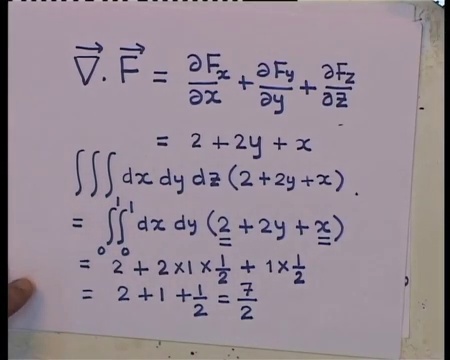 ∇⃗ . F⃗ = ∂Fx/∂x + ∂Fy/∂y + ∂Fz/∂z
= 2 + 2y + x
∫∫∫ dx dy dz (2 + 2y + x) .
= ∫₀¹∫₀¹ dx dy (2 + 2y + x)
= 2 + 2 × 1 × 1/2 + 1 × 1/2
= 2 + 1 + 1/2 = 7/2